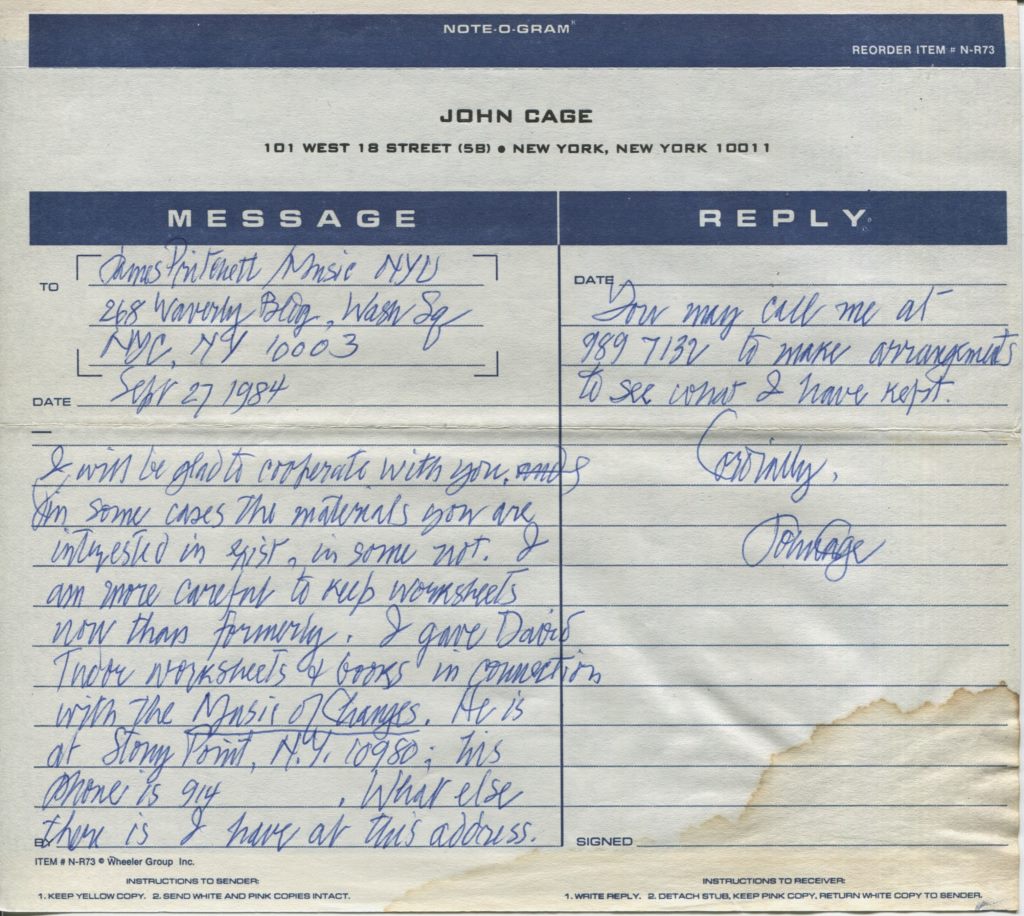 NOTE-O-GRAM
REORDER ITEM # N-R73
JOHN CAGE
101 WEST 18 STREET (5B) • NEW YORK, NEW YORK 10011
MESSAGE
TO
James Pritchett / Music NYU
268 Waverly Bldg, Wash Sq
NYC, NY 10003
DATE Sept 27 1984
I will be glad to cooperate with you.
In some cases the materials you are
interested in exist, in some not. I
am more careful to keep worksheets
now than formerly. I gave David
Tudor worksheets & books in connection
with the Music of Changes. He is
at Stony Point, N.Y. 10980; his
phone is 914 . What else
there is I have at this address.
BY
ITEM # N-R73 © Wheeler Group Inc.
INSTRUCTIONS TO SENDER:
1. KEEP YELLOW COPY. 2. SEND WHITE AND PINK COPIES INTACT.
REPLY
DATE
You may call me at
989 7132 to make arrangements
to see what I have kept.
Cordially,
John Cage
SIGNED
INSTRUCTIONS TO RECEIVER:
1. WRITE REPLY. 2. DETACH STUB, KEEP PINK COPY, RETURN WHITE COPY TO SENDER.